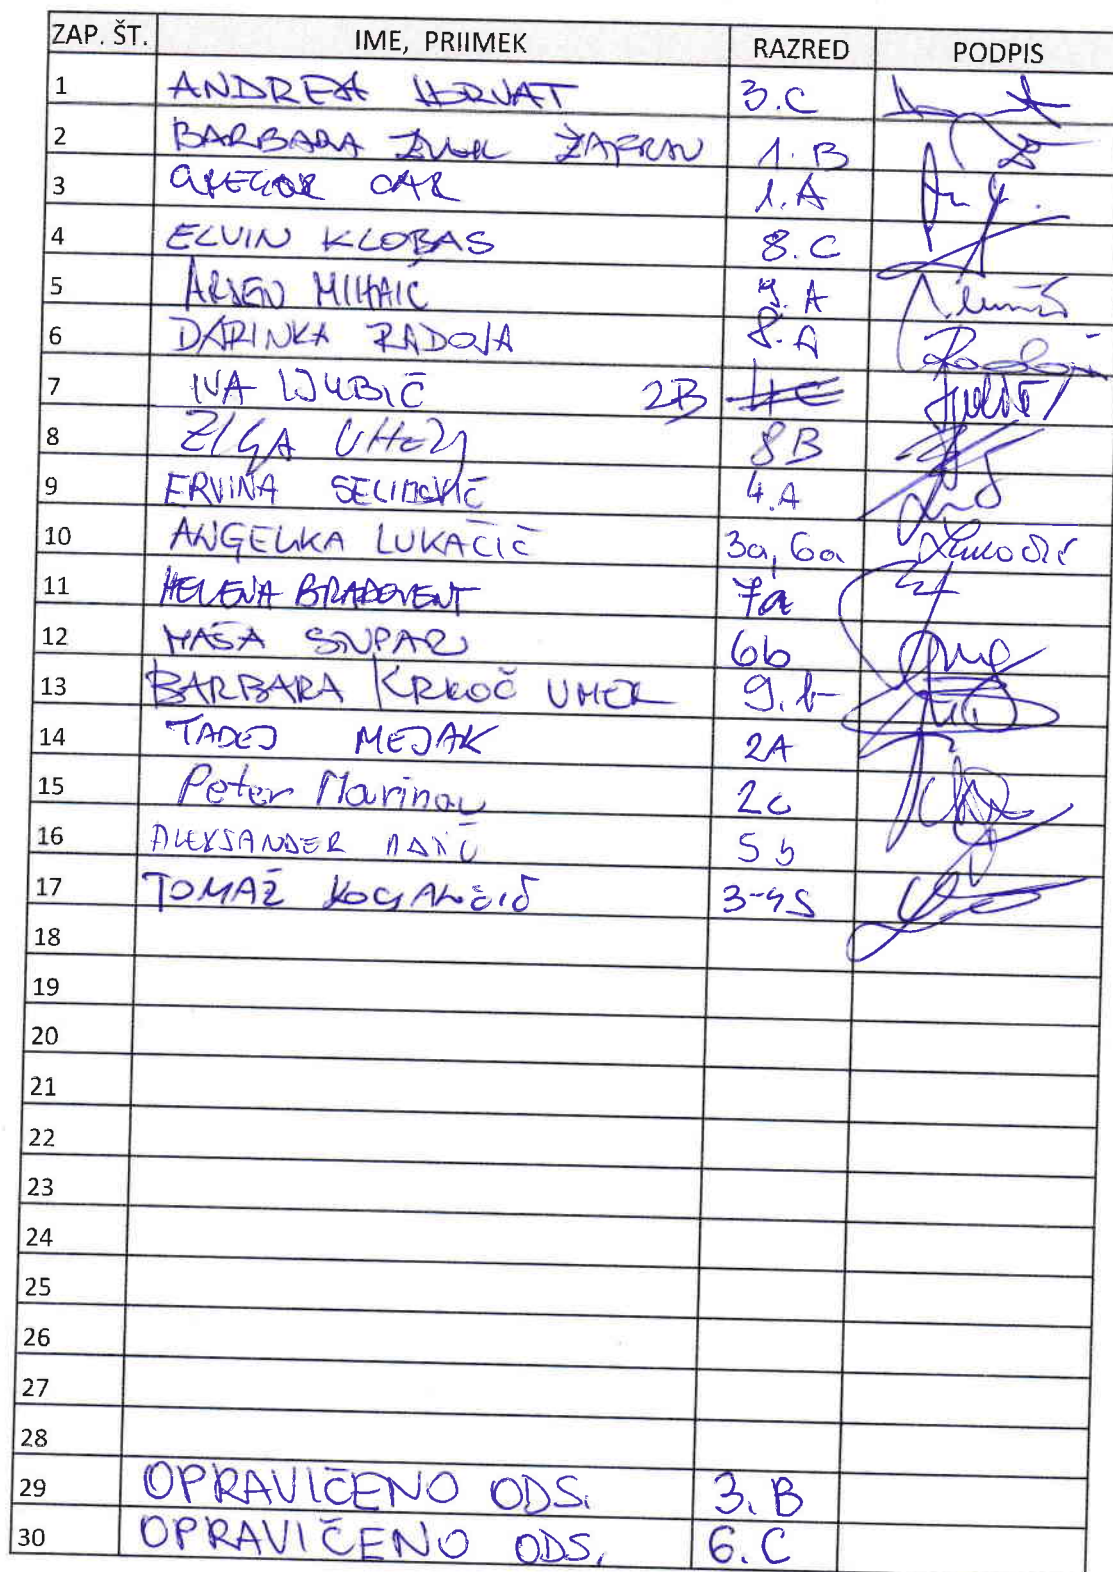 ZAP. ŠT. IME, PRIIMEK RAZRED PODPIS
1 ANDREA HORVAT 3.C
2 BARBARA ŽAFRAN 1.B
3 GREGOR CAR 1.A
4 ELVIN KLOBAS 8.C
5 ARSEN MIHAIČ 9.A
6 DARINKA RADOJA 8.A
7 IVA LJUBIČ 2B
8 ŽIGA UHELJ 8B
9 ERVINA 4.A
10 ANGELKA LUKAČIČ 3a, 6a
11 HELENA 7a
12 MAŠA 6b
13 BARBARA KRKOČ UHELJ 9.b
14 TADEJ MEJAK 2A
15 Peter Marinov 2c
16 ALEKSANDER 5b
17 TOMAŽ 3-4S
18
19
20
21
22
23
24
25
26
27
28
29 OPRAVIČENO ODS. 3.B
30 OPRAVIČENO ODS. 6.C